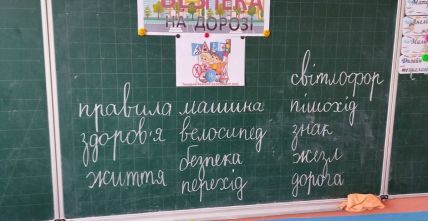 БЕЗПЕКА
НА ДОРОЗІ
світлофор
правила машина пішохід
здоров'я велосипед знак
безпека жезл
життя перехід дорога